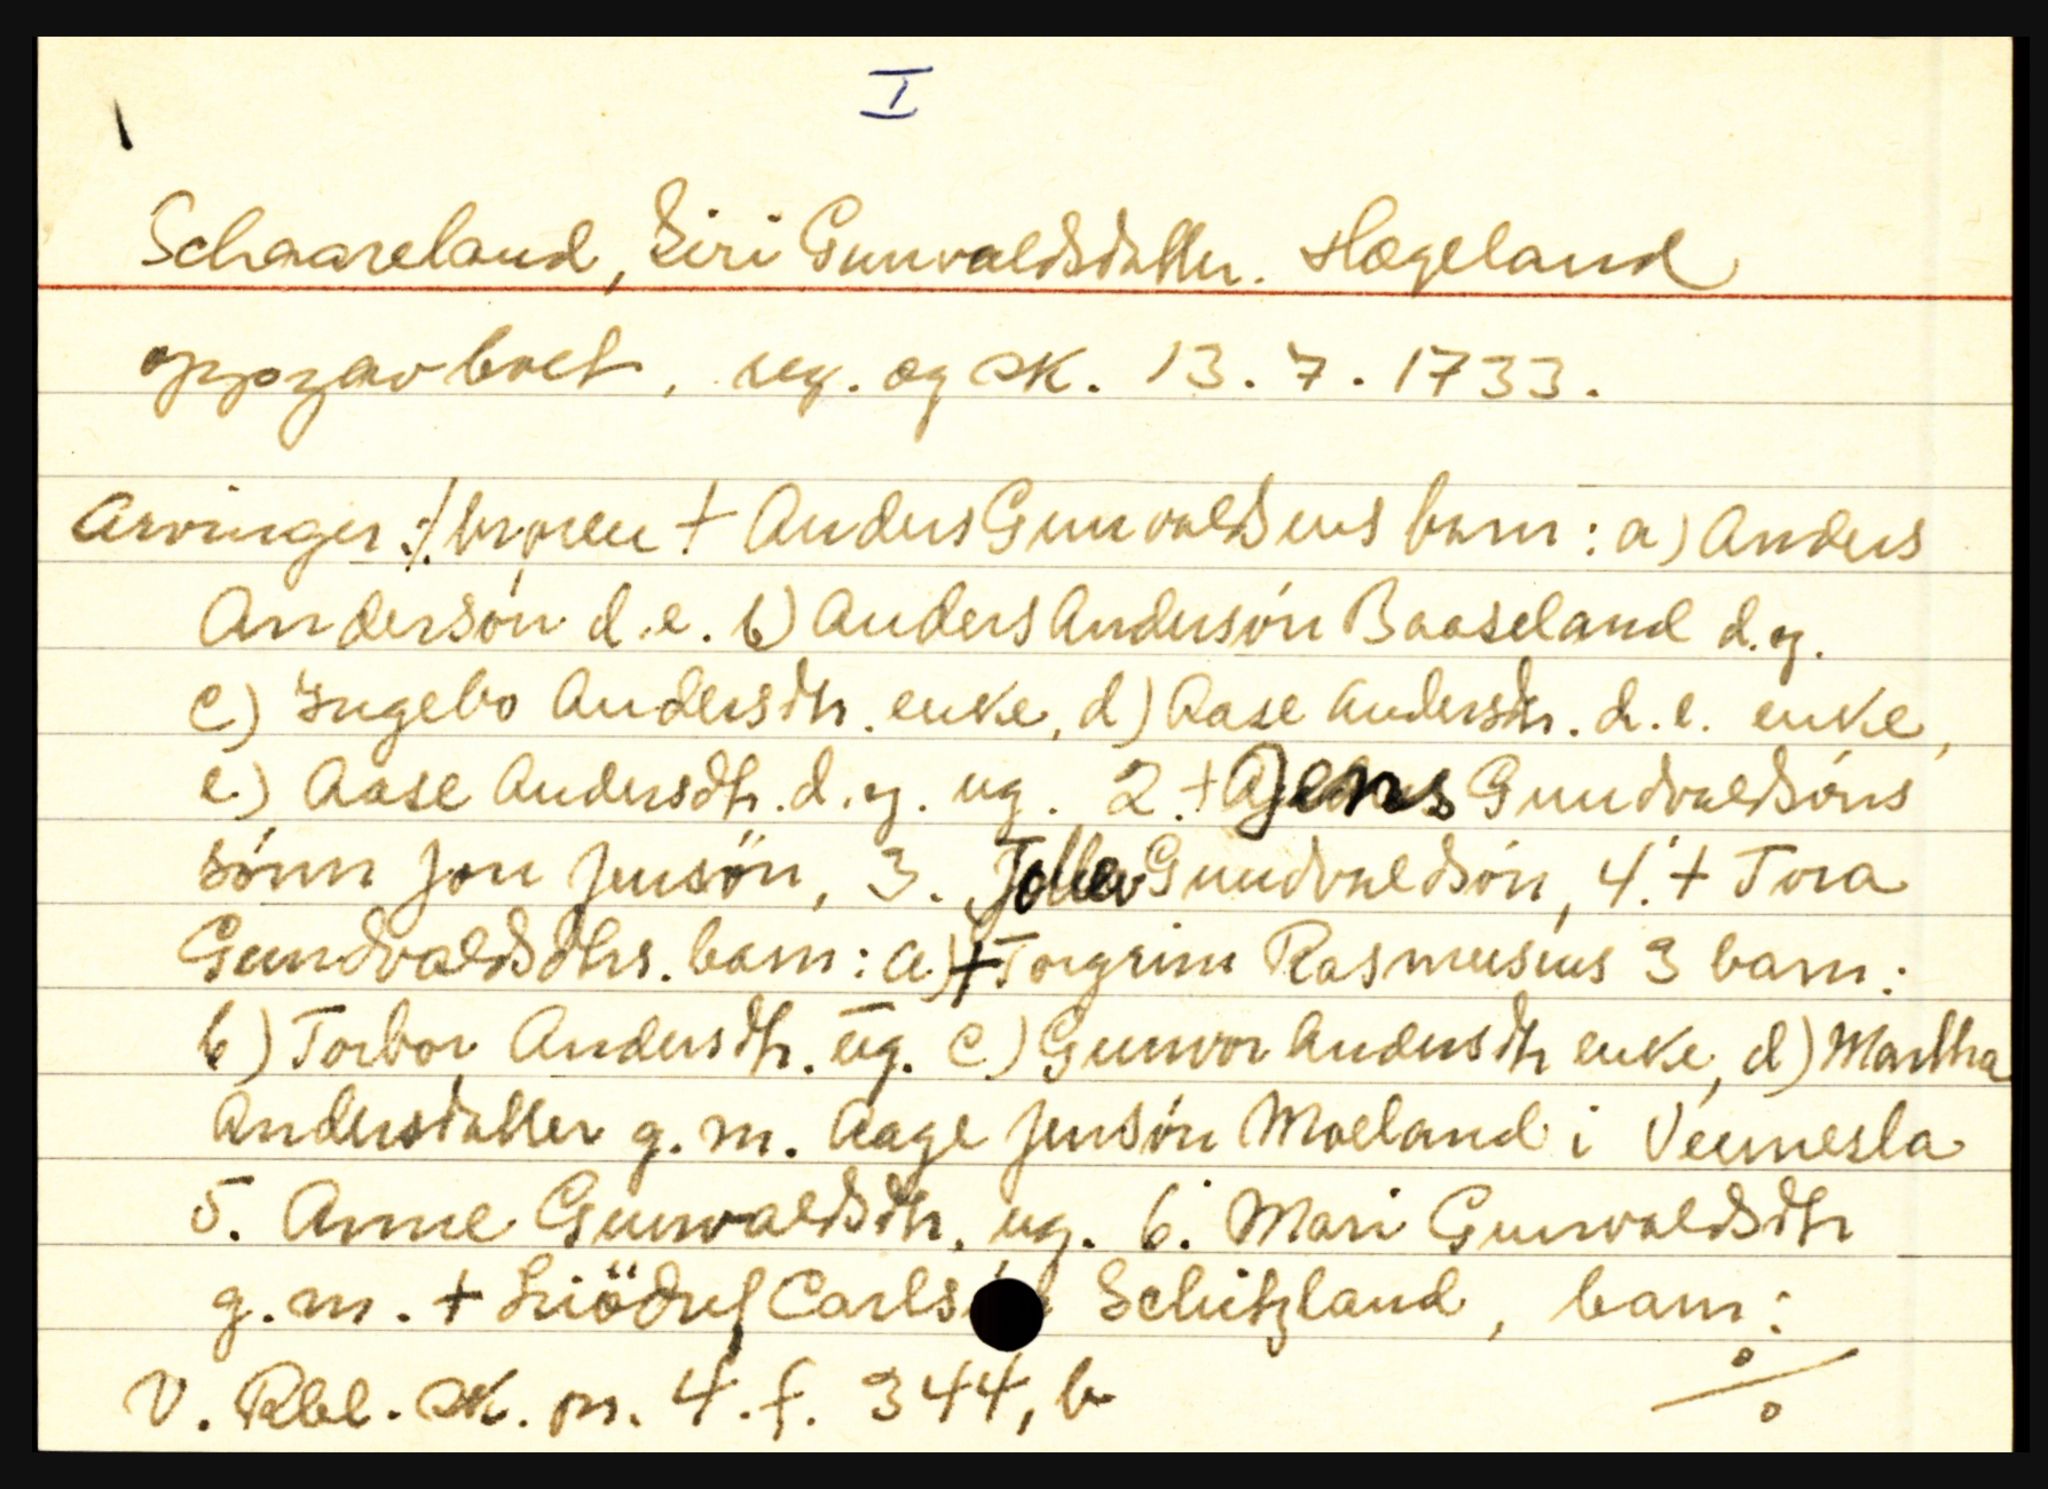 I
Schaareland, Siri Gunvaldsdatter. Hægeland
oppgavboet, reg. og sk. 13. 7. 1733.
Arvinger: 1. broren + Anders Gunvaldsens barn: a) Anders
Andersön d.e. b) Anders Andersön Baaseland d.y.
c) Ingebo Andersdtr. enke, d) Aase Andersdtr. d.e. enke,
e) Aase Andersdtr. d.y. ug. 2. + Jens Gundvaldsöns
sönn Jon Jensön, 3. Tollev Gundvaldsön, 4. + Tora
Gundvaldsdtrs. barn: a) + Torgrim Rasmusens 3 barn:
b) Torbor Andersdtr. ug. c) Gunvor Andersdtr enke, d) Martha
Andersdatter g. m. Aage Jensön Moeland i Vennesla
5. Anne Gunvaldsdtr. ug. 6. Mari Gunvaldsdtr
g. m. + Carls Schitzland, barn:
V. Rbl. sk. pr. 4. f. 344, b %